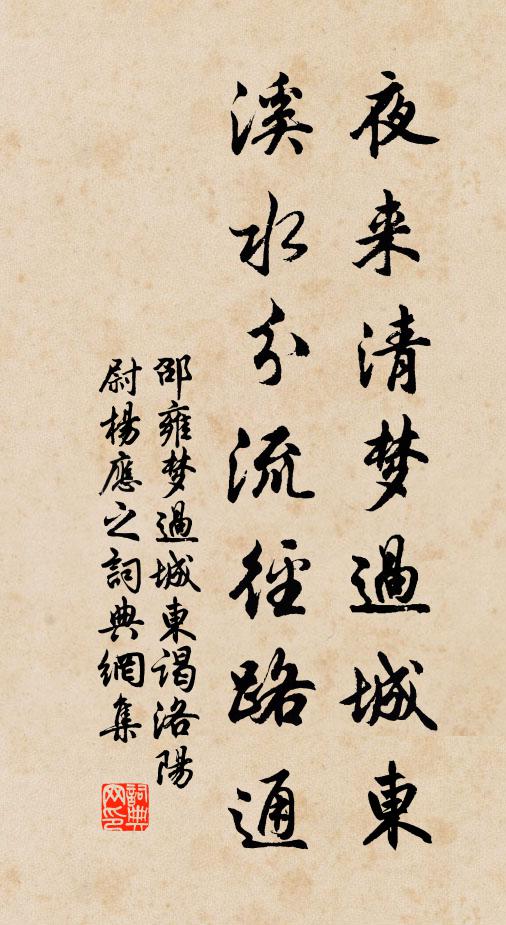 夜来清梦過城東
溪水分流徑路通
邵雍梦過城東谒洛陽
尉楊應之詞典網集
詞典
网印